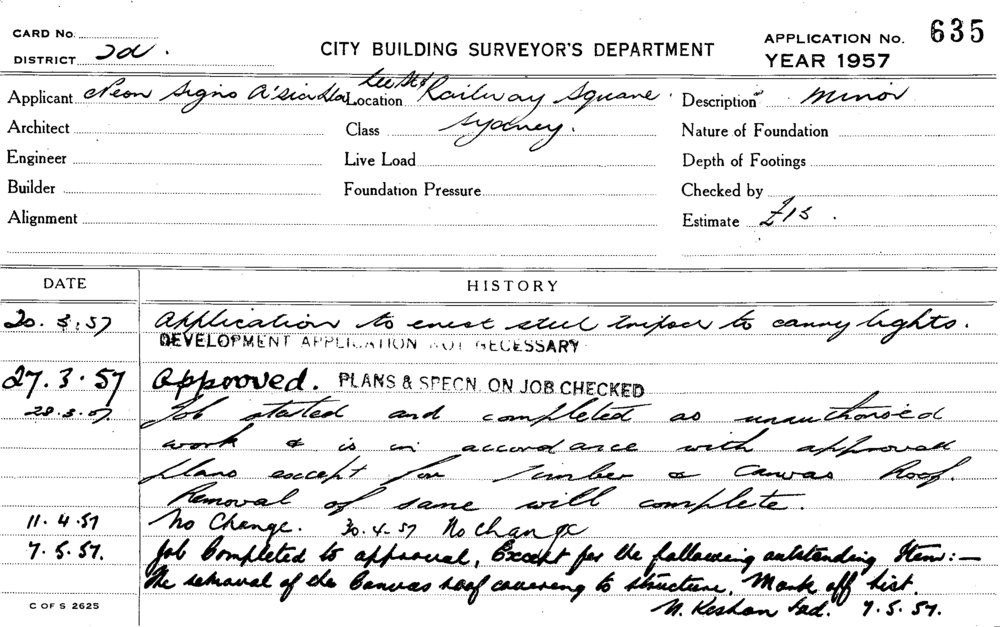 CARD No.
DISTRICT 2d.
CITY BUILDING SURVEYOR'S DEPARTMENT
APPLICATION No. 635
YEAR 1957
Applicant Neon Signs A'sia Location Lee St & Railway Square Description Minor
Architect Class Sydney. Nature of Foundation
Engineer Live Load Depth of Footings
Builder Foundation Pressure Checked by
Alignment Estimate £15.
DATE HISTORY
20.3.57 Application to erect steel tripod to carry lights.
DEVELOPMENT APPLICATION NOT NECESSARY
27.3.57 Approved. PLANS & SPECN. ON JOB CHECKED
28.3.57 Job started and completed as unauthorised
work & is in accordance with approved
plans except for Timber & Canvas Roof.
Removal of same will complete.
11.4.57 No Change. 30.4.57 No change
7.5.57. Job Completed to approval, Except for the following outstanding Item:-
The removal of the Canvas roof covering to structure. Mark off list.
7.5.57.
C OF S 2625